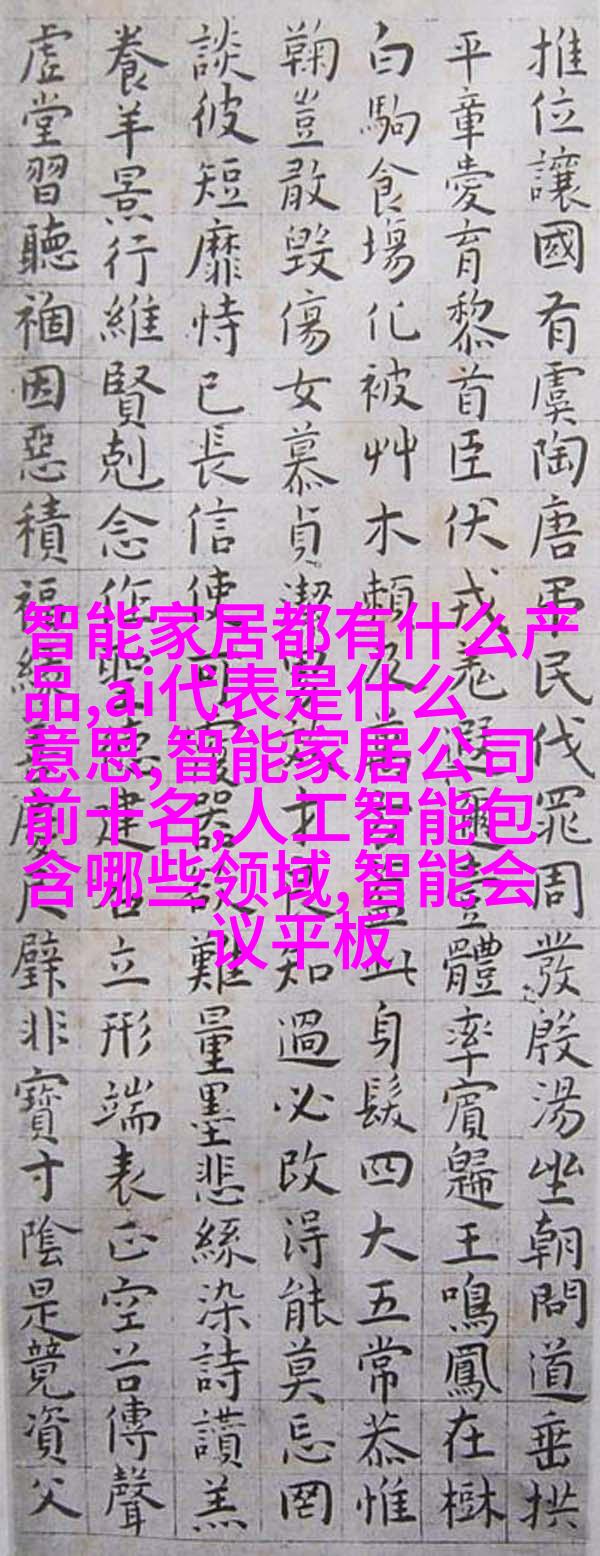 推位讓國有虞陶唐弔民伐罪周發殷湯坐朝問道垂拱
平章愛育黎首臣伏戎羌遐邇壹體率賓歸王鳴鳳在樹
白駒食場化被艸木賴及萬方蓋此身髮四大五常恭惟
鞠豈敢毀傷女慕貞潔男效才良知過必改得能莫忘罔
談彼短靡恃己長信使可覆器欲難量墨悲絲染詩讚羔
養羊景行維賢剋念作聖德建名立形端表正空谷傳聲
虛堂習聽禍因惡積福緣善慶尺璧非寶寸陰是競資父
智能家居都有什么产
品,ai代表是什么
意思,智能家居公司
前十名,人工智能包
含哪些领域,智能会
议平板